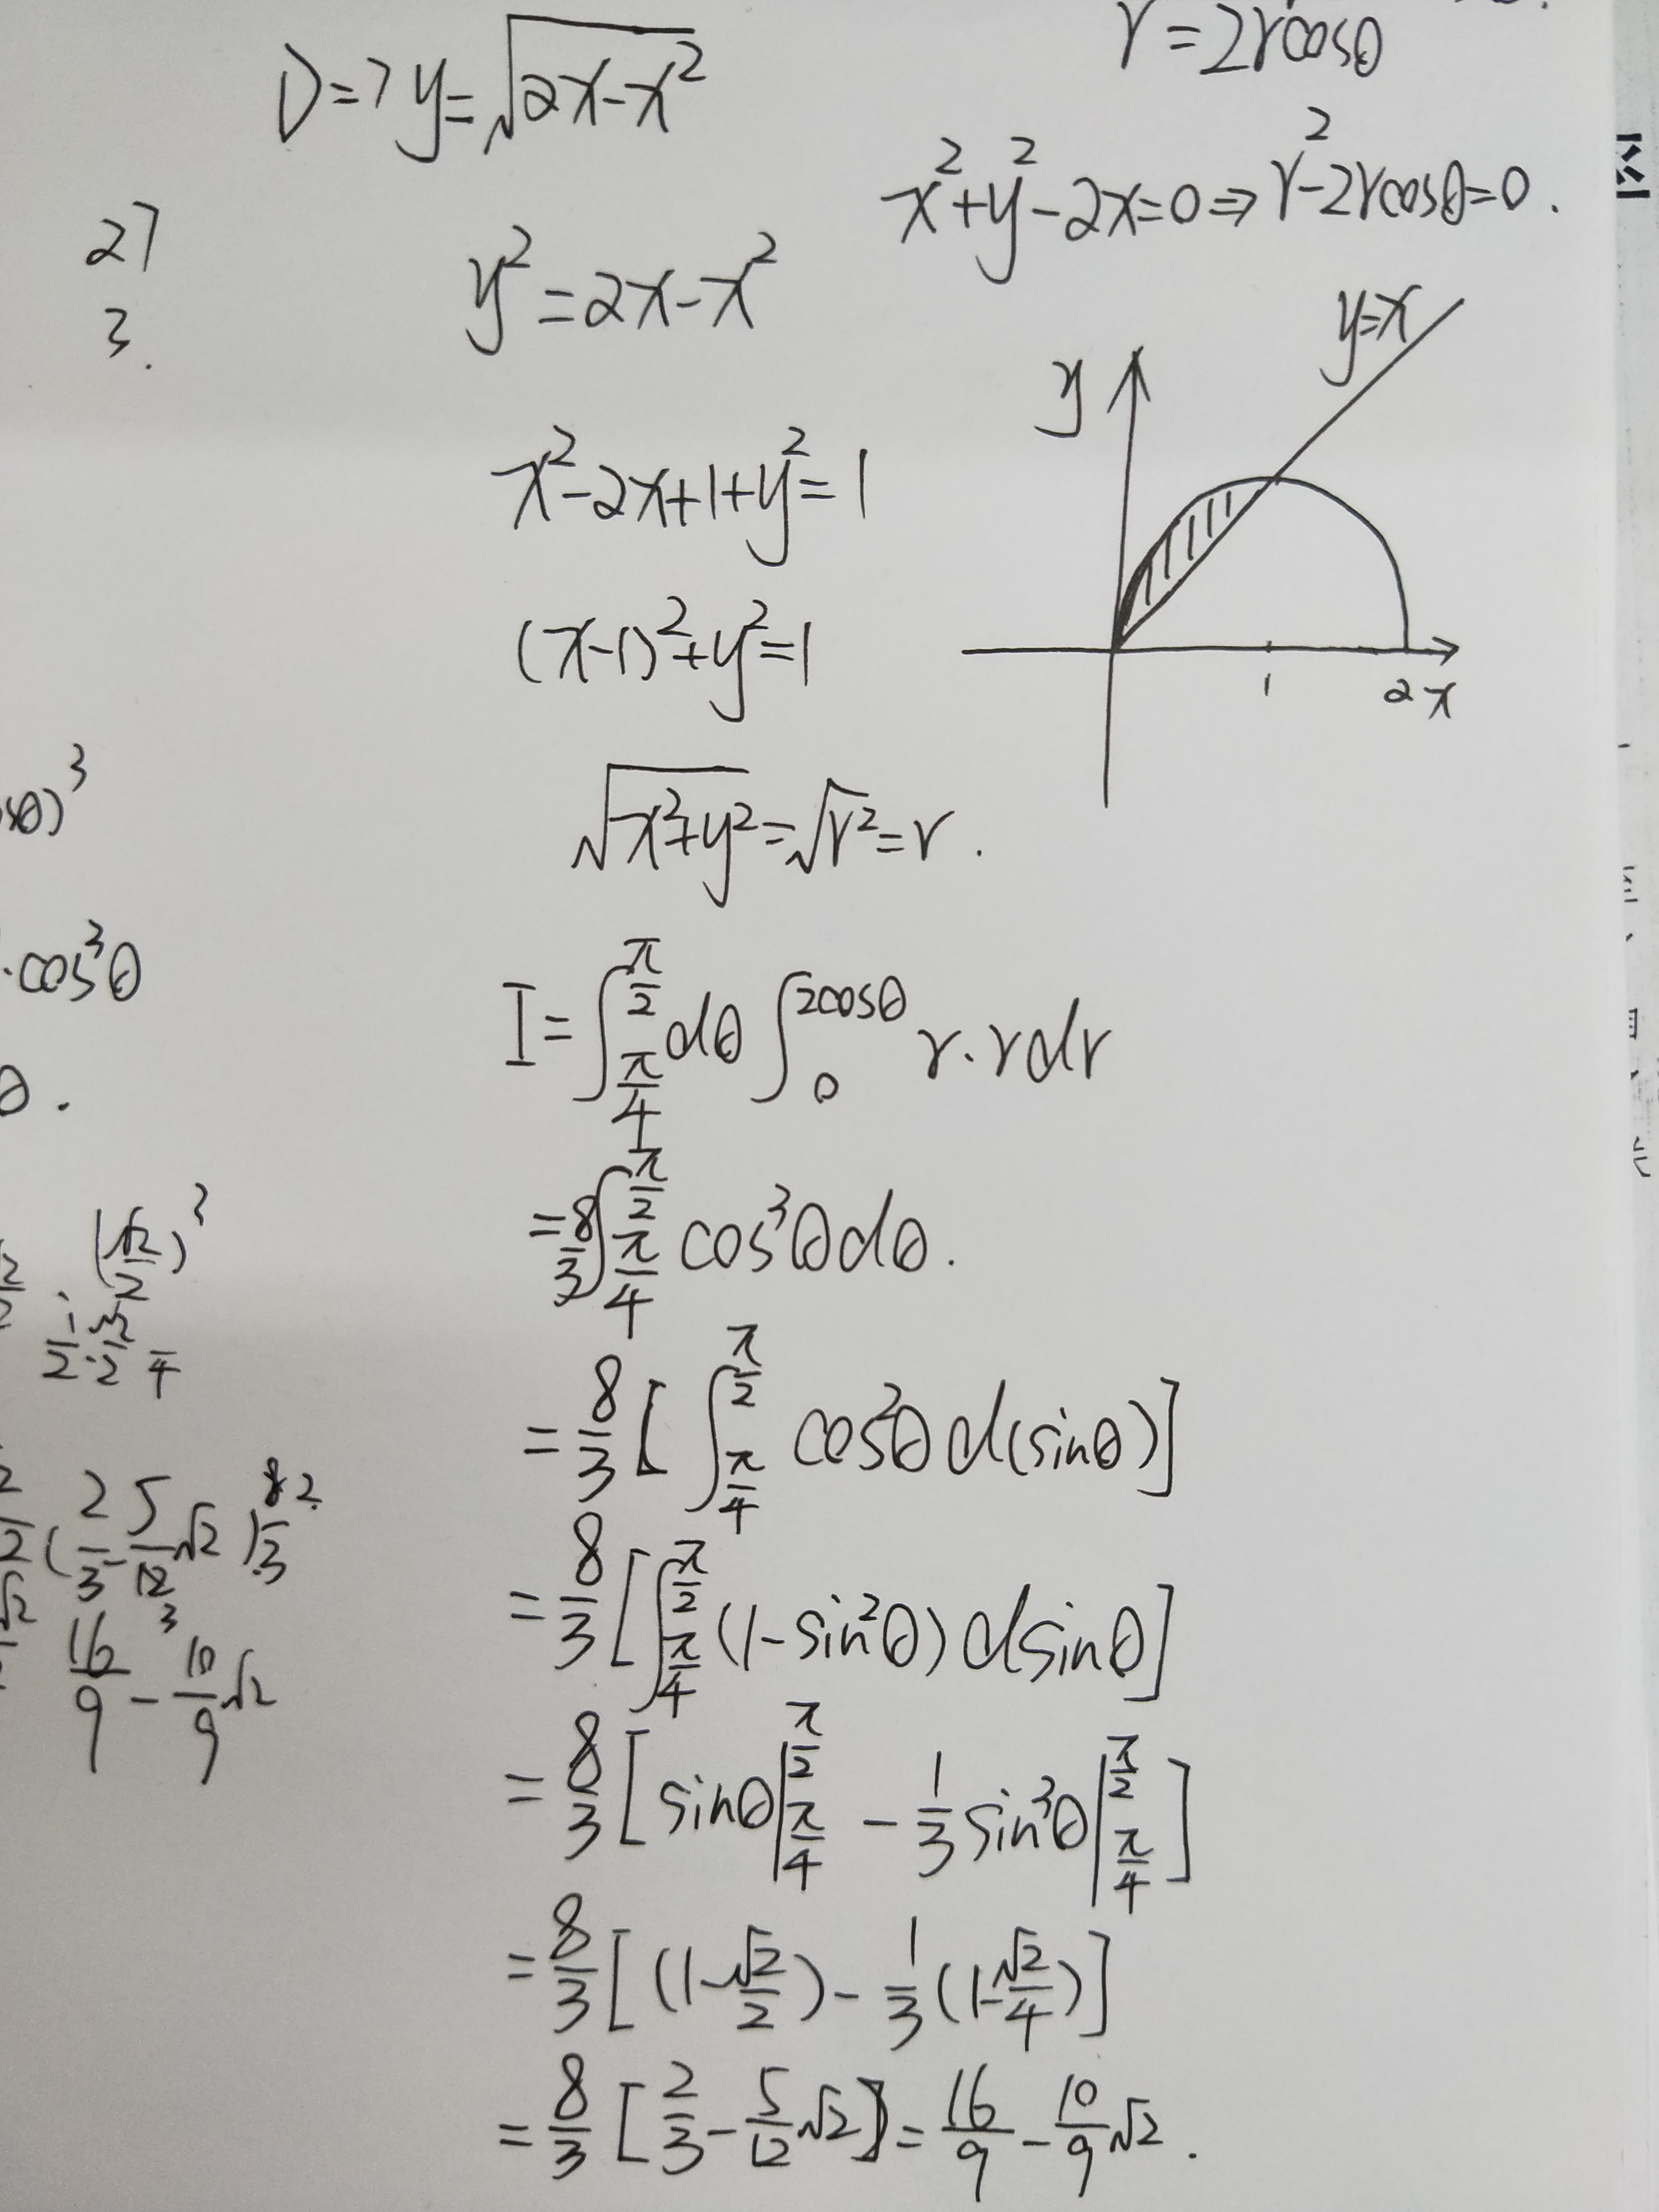 r=2rcosθ
D=7 y=√(2x-x²)
x²+y²-2x=0⇒r²-2rcosθ=0.
27
3.
y²=2x-x²
y=x
y
x²-2x+1+y²=1
(x-1)²+y²=1
1 2 x
√(x²+y²)=√r²=r.
sθ)³
·cos³θ
θ.
I=∫_{π/4}^{π/2}dθ∫_0^{2cosθ} r·rdr
=8/3∫_{π/4}^{π/2} cos³θdθ.
(√2/2)³
=8/3[∫_{π/4}^{π/2} cos²θd(sinθ)]
(2/3-5/12√2)
=8/3[∫_{π/4}^{π/2}(1-sin²θ)dsinθ]
16/9-10/9√2
=8/3[sinθ|_{π/4}^{π/2}-1/3sin³θ|_{π/4}^{π/2}]
=8/3[(1-√2/2)-1/3(1-√2/4)]
=8/3[2/3-5/12√2]=16/9-10/9√2.